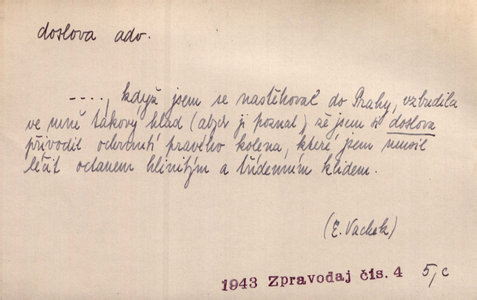 doslova adv.
...., když jsem se nastěhoval do Prahy, vzbudila
ve mně takový hlad (abych ji poznal), že jsem si doslova
přivodil ochrnutí pravého kolena, které jsem musil
léčit octanem hlinitým a třídenním klidem.
(E. Vachek)
1943 Zpravodaj čís. 4 5,c